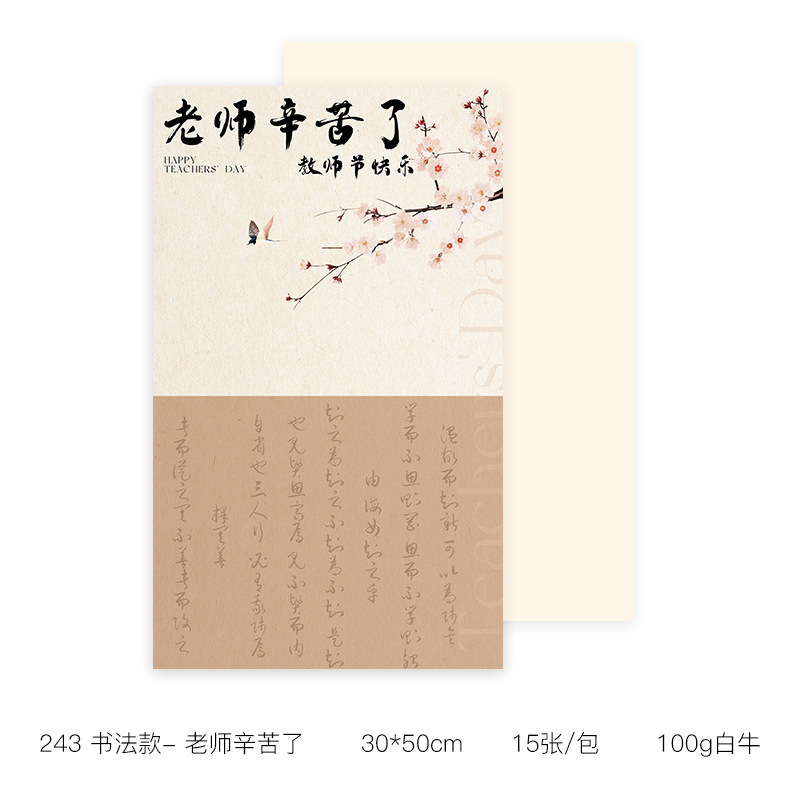 老师辛苦了
HAPPY
TEACHERS' DAY
教师节快乐
Teachers' Day
温故而知新可以為师矣
学而不思则罔思而不学则殆
由诲女知之乎
知之為知之不知為不知是知
也见贤思齐焉见不贤而内
自省也三人行必有我师焉
择其善
者而从之其不善者而改之
243 书法款- 老师辛苦了 30*50cm 15张/包 100g白牛